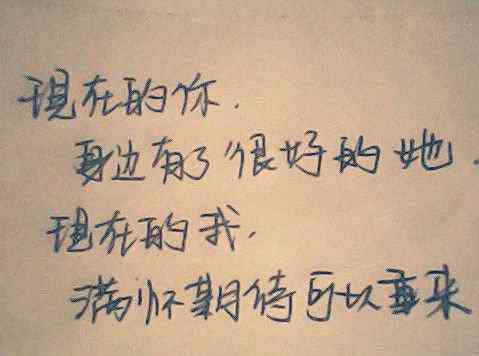 現在的你.
身边有了很好的她.
現在的我.
满怀期待可以重来